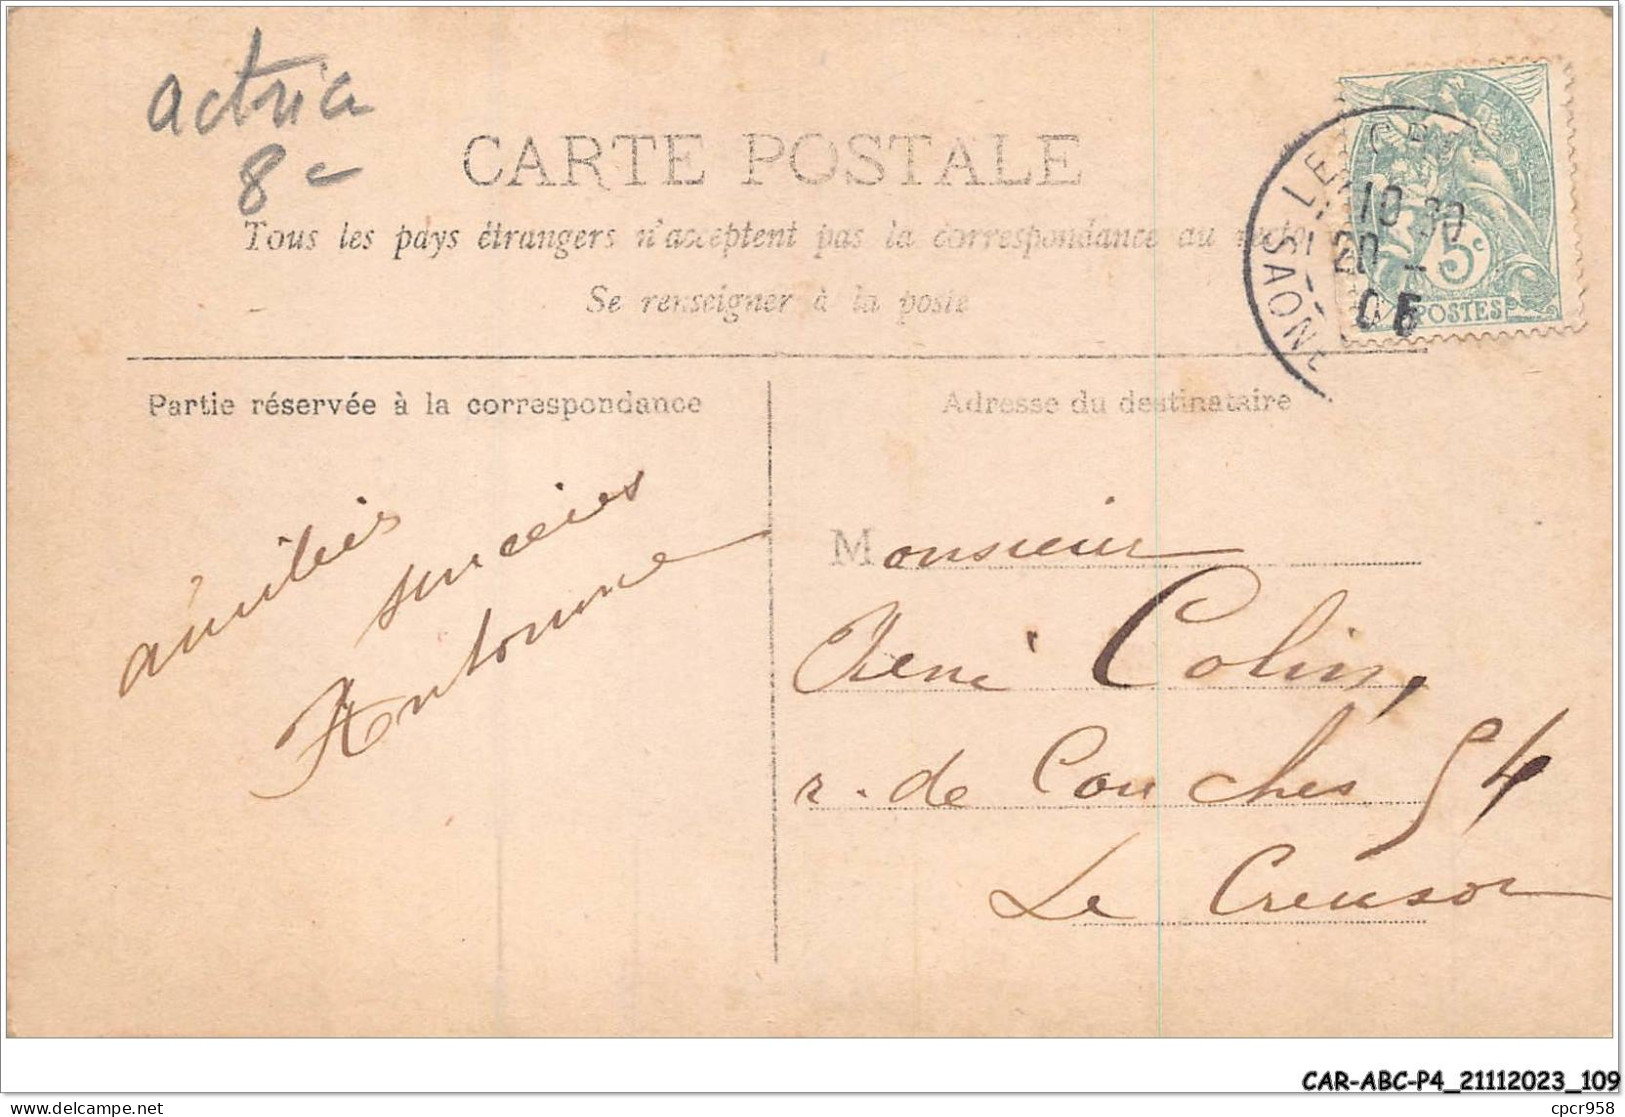 actria
8
CARTE POSTALE
Tous les pays étrangers n'acceptent pas la correspondance au recto
Se renseigner à la poste
LE CR
SAONE
10 30
20 -
05
5c
POSTES
Partie réservée à la correspondance
Adresse du destinataire
amitiés
sincères
Antonine
Monsieur
René Colin,
r. de Couches 54
Le Creusot
CAR-ABC-P4_21112023_109
cpcr958